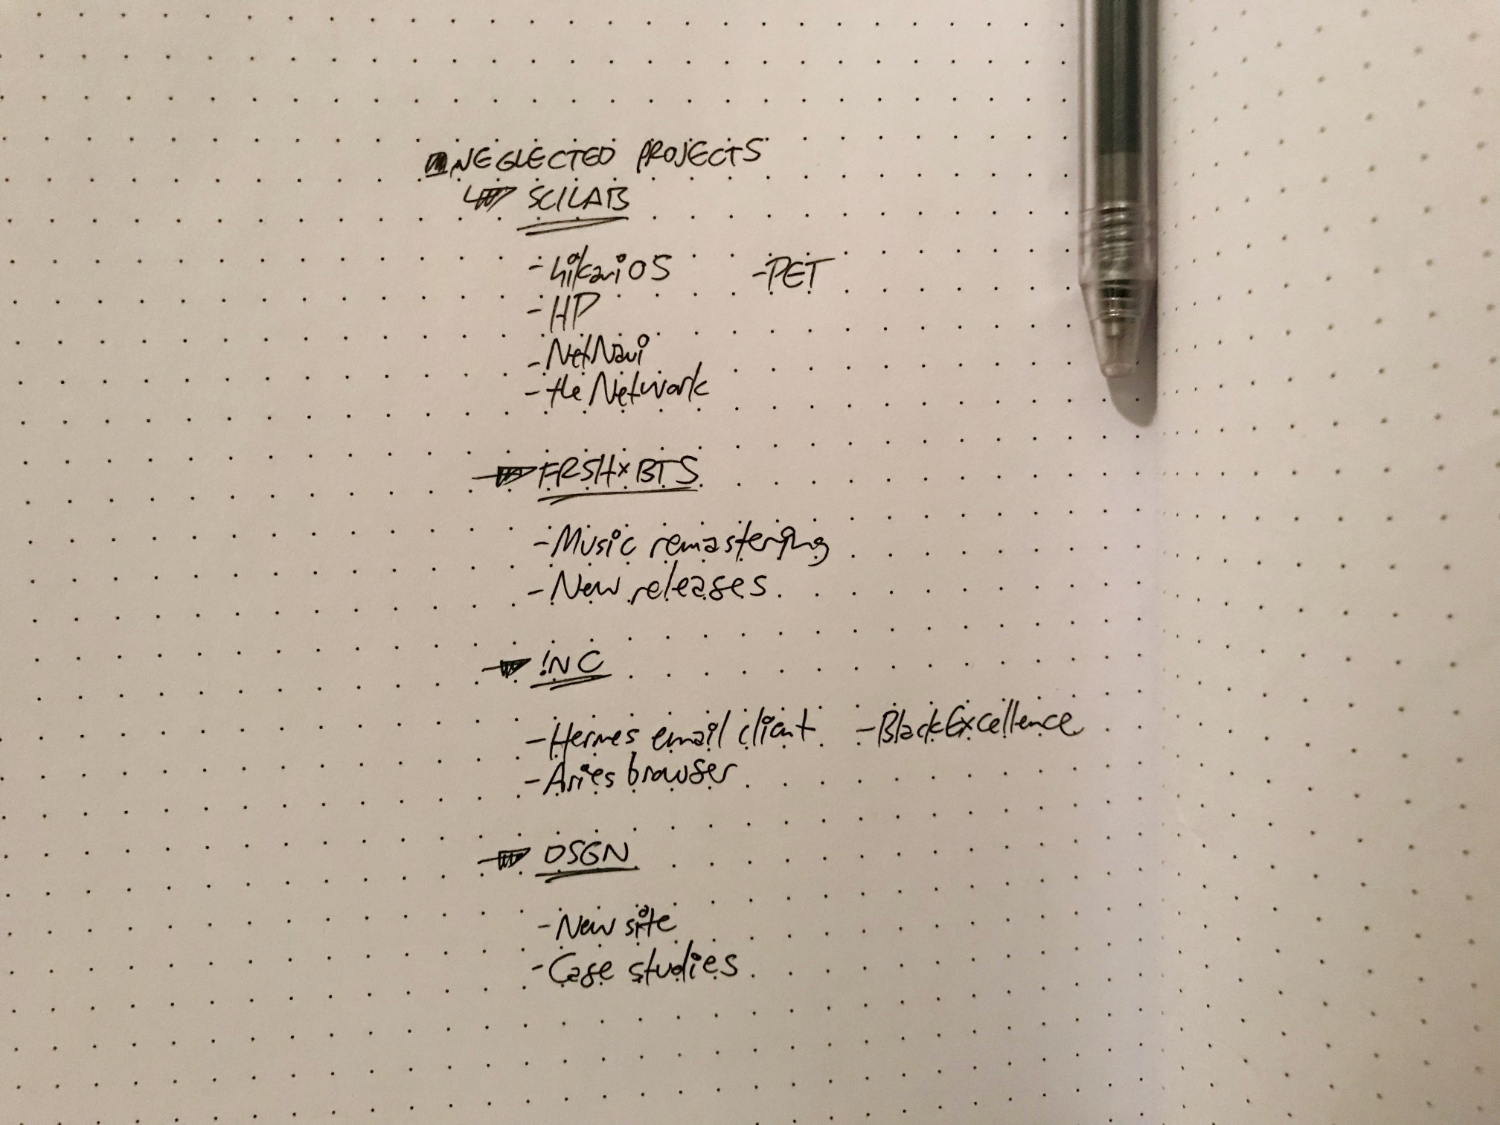 NEGLECTED PROJECTS
SCILAB
- hikariOS - PET
- HP
- NetNavi
- the Network
FRSH×BTS
- Music remastering
- New releases
!NC
- Hermes email client - BlackExcellence
- Aries browser
DSGN
- New site
- Case studies